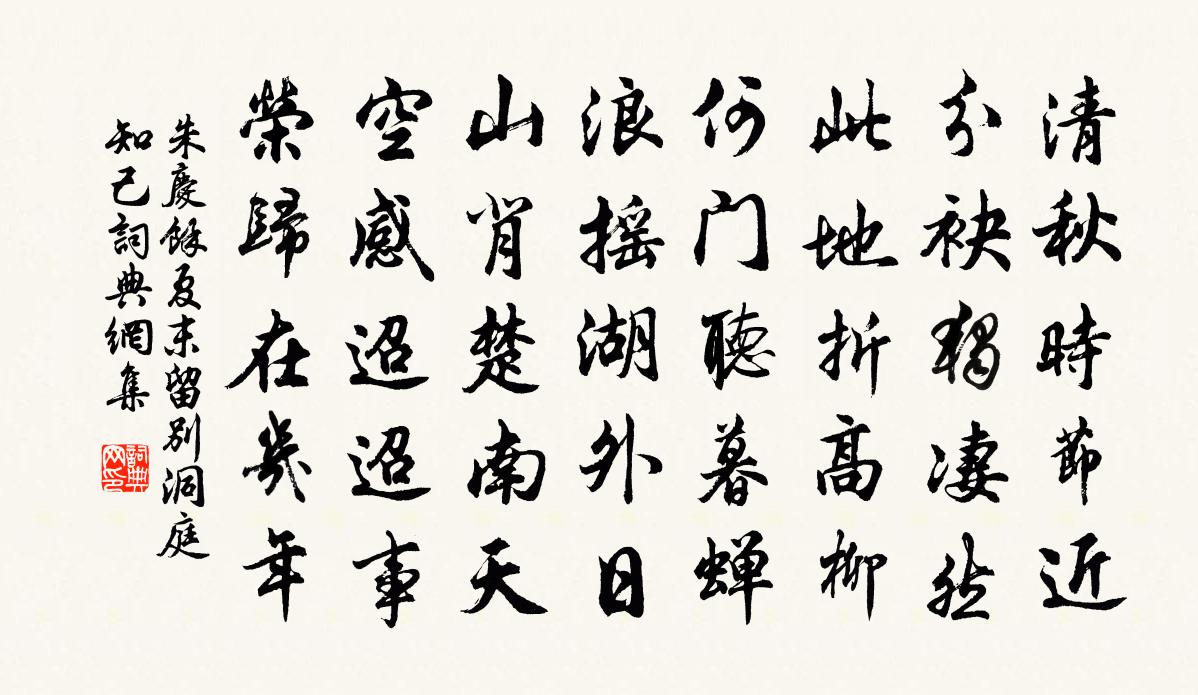 清秋時節近
分袂獨凄然
此地折高柳
何门聽暮蝉
浪摇湖外日
山背楚南天
空感迢迢事
榮歸在幾年
朱慶餘夏末留别洞庭
知己詞典網集
詞典
网印